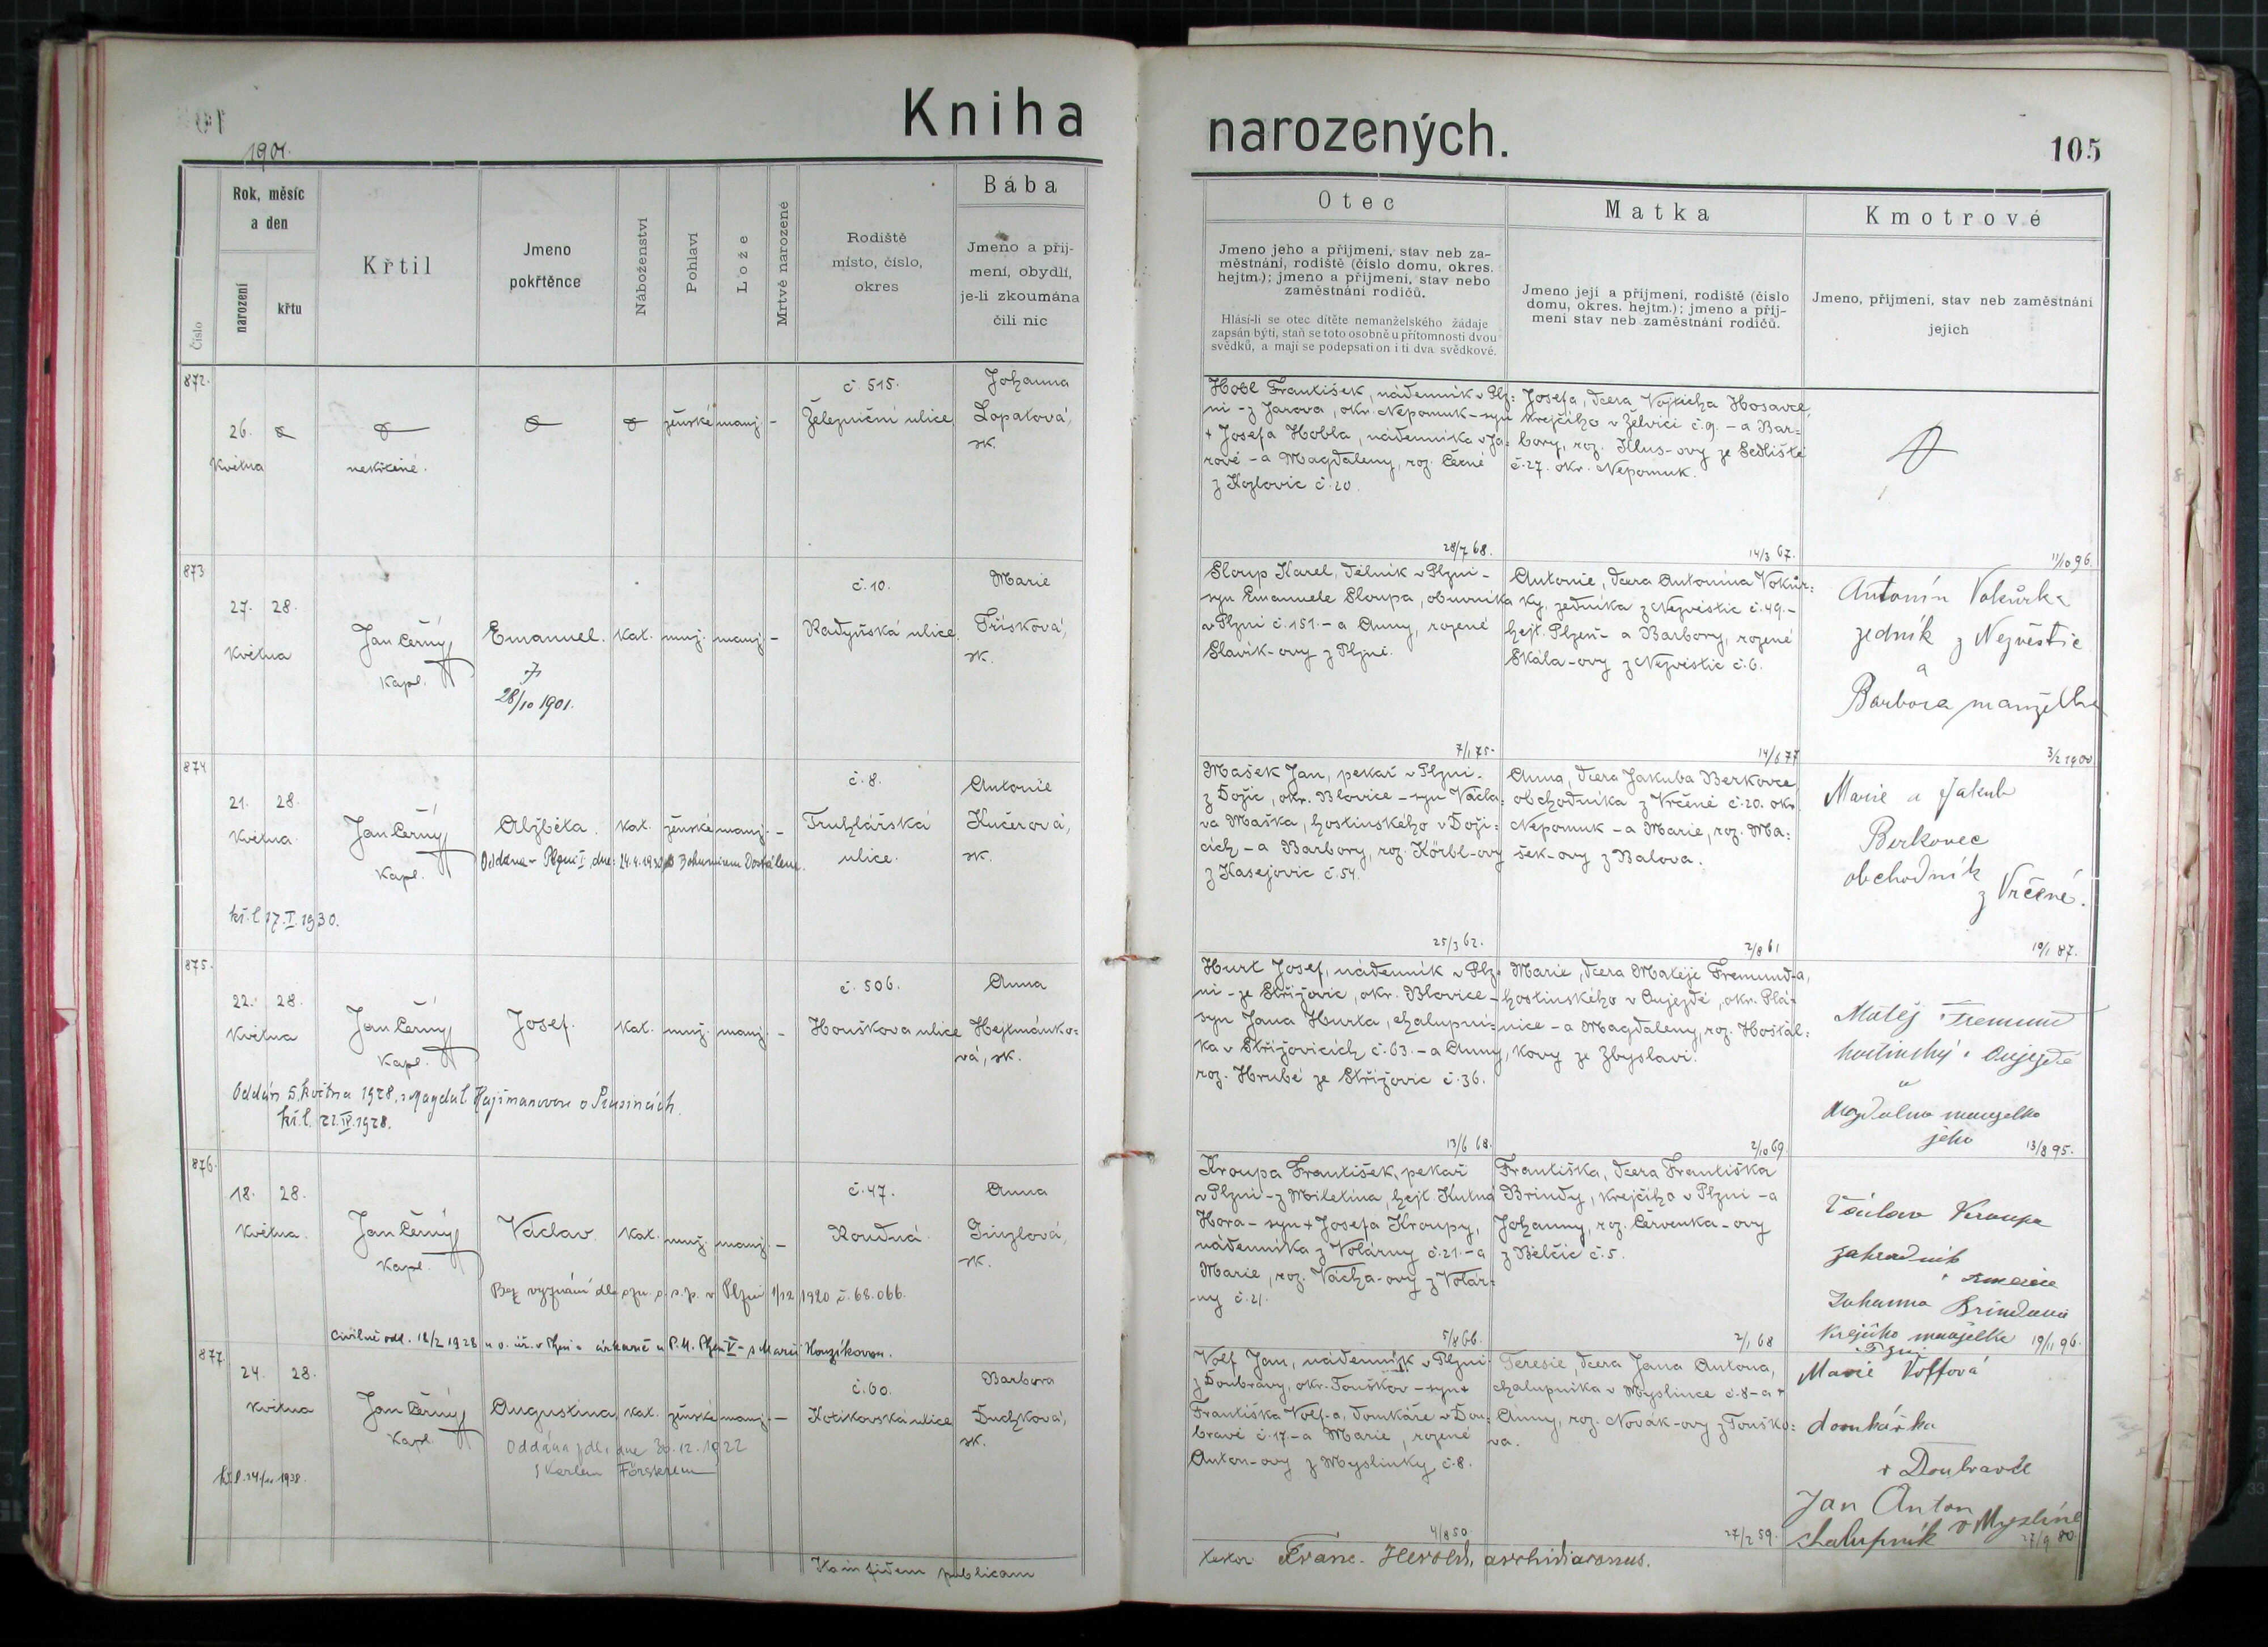 Kniha
narozených.
105
1901.
Číslo
Rok, měsíc
a den
narození
křtu
Křtil
Jmeno
pokřtěnce
Náboženství
Pohlaví
Lože
Mrtvě narozené
Rodiště
místo, číslo,
okres
Bába
Jmeno a příj-
mení, obydlí,
je-li zkoumána
čili nic
Otec
Jmeno jeho a příjmení, stav neb za-
městnání, rodiště (číslo domu, okres.
hejtm.); jmeno a příjmení, stav nebo
zaměstnání rodičů.
Hlásí-li se otec dítěte nemanželského žádaje
zapsán býti, staň se toto osobně u přítomnosti dvou
svědků, a mají se podepsati on i ti dva svědkové.
Matka
Jmeno její a příjmení, rodiště (číslo
domu, okres. hejtm.); jmeno a příj-
mení stav neb zaměstnání rodičů.
Kmotrové
Jmeno, příjmení, stav neb zaměstnání
jejich
872.
26.
Května
nekřtěné.
ženské manž. -
č. 515.
Železniční ulice
Johanna
Lopatová,
zk.
Hobl František, nádenník v Plz=
ni - z Jarova, okr. Nepomuk - syn
+ Josefa Hobla, nádenníka v Ja=
rově - a Magdaleny, roz. Černé
z Kozlovic č. 20.
28/7 68.
Josefa, dcera Vojtěcha Hosavce,
krejčího v Želvici č. 9. - a Bar=
bory, roz. Klus-ovy ze Sedliště
č. 27. okr. Nepomuk.
14/3 67.
11/10 96.
873
27. 28.
Května
Jan Černý
Kapl.
Emanuel.
†
28/10 1901.
kat. muž. manž. -
č. 10.
Radyňská ulice.
Marie
Tříšková,
zk.
Sloup Karel, dělník v Plzni -
syn Emanuele Sloupa, obuvníka
v Plzni č. 151. - a Anny, rozené
Slavík-ovy z Plzni.
7/1 75.
Antonie, dcera Antonína Vokůr=
ky, zedníka z Nezvěstic č. 49. -
hejt. Plzeň - a Barbory, rozené
Skála-ovy z Nezvěstic č. 6.
14/6 77
Antonín Vokůrka
zedník z Nezvěstic
a
Barbora manželka
3/2 1900
874
21. 28.
Května.
Jan Černý
Kapl.
Alžběta.
Oddána v Plzni I, dne 24.4.1930 s Bohumírem Dostálem.
kat. ženské manž. -
kř. l. 17.I.1930.
č. 8.
Truhlářská
ulice.
Antonie
Kučerová,
zk.
Mašek Jan, pekař v Plzni -
z Dožic, okr. Blovice - syn Václa=
va Maška, hostinského v Doži=
cích - a Barbory, roz. Körbl-ovy
z Kasejovic č. 54.
25/3 62.
Anna, dcera Jakuba Berkovce,
obchodníka z Vrčeně č. 20. okr.
Nepomuk - a Marie, roz. Ma=
šek-ovy z Balova.
2/8 61
Marie a Jakub
Berkovec
obchodník
z Vrčeně.
10/1 87.
875.
22. 28.
Května
Jan Černý
Kapl.
Josef.
kat. muž. manž. -
č. 506.
Houškova ulice
Anna
Hejtmánko=
vá, zk.
Oddán 5. května 1928, s Magdal. Hajšmanovou v Prusinách.
kř. l. 22.IV.1928.
Hurt Josef, nádenník v Plz=
ni - ze Střížovic, okr. Blovice -
syn Jana Hurta, chalupní=
ka v Střížovicích č. 63. - a Anny,
roz. Hrubé ze Střížovic č. 36.
13/6 68.
Marie, dcera Matěje Fremund-a,
hostinského v Aujezdě, okr. Plá=
nice - a Magdaleny, roz. Hošťál=
kovy ze Zbyslavi.
2/10 69.
Matěj Fremund
hostinský v Aujezdě
a
Magdalena manželka
jeho
13/8 95.
876.
18. 28.
Května.
Jan Černý
Kapl.
Václav.
kat. muž. manž. -
č. 47.
Roudná.
Anna
Ginzlová,
zk.
Bez vyznání dle ozn. o. s. p. v Plzni 1/12 1920 č. 68.066.
Civilně odd. 18/2 1928 u o. úř. v Plzni a církevně u P.M. Plzeň V - s Marií Honzíkovou.
Kroupa František, pekař
v Plzni - z Miletína, hejt. Kutná
Hora - syn + Josefa Kroupy,
nádenníka z Volárny č. 21. - a
Marie, roz. Vácha-ovy z Volár=
ny č. 21.
5/8 66.
Františka, dcera Františka
Brindy, krejčího v Plzni - a
Johanny, roz. Červenka-ovy
z Bělčic č. 5.
2/1 68
Václav Kroupa
zahradník
Johanna Brindová
krejčího manželka
v Plzni
19/11 96.
877.
24. 28.
května
Jan Černý
Kapl.
Augustina
kat. ženské manž. -
Oddána zde, dne 30.12.1922
s Karlem Försterem
č. 60.
Kotíkovská ulice
Barbora
Duchková,
zk.
Volf Jan, nádenník v Plzni
z Doubravy, okr. Touškov - syn +
Františka Volf-a, domkáře v Dou=
bravě č. 17. - a Marie, rozené
Anton-ovy z Myslinky č. 8.
4/8 50.
Teresie, dcera Jana Antona,
chalupníka v Myslince č. 8 - a +
Anny, roz. Novák-ovy z Touško=
va.
27/2 59.
Marie Volfová
domkářka
v Doubravě
Jan Anton
chalupník v Myslině
27/9 80.
fidem publicam
Franc. Herold, archidiaconus.